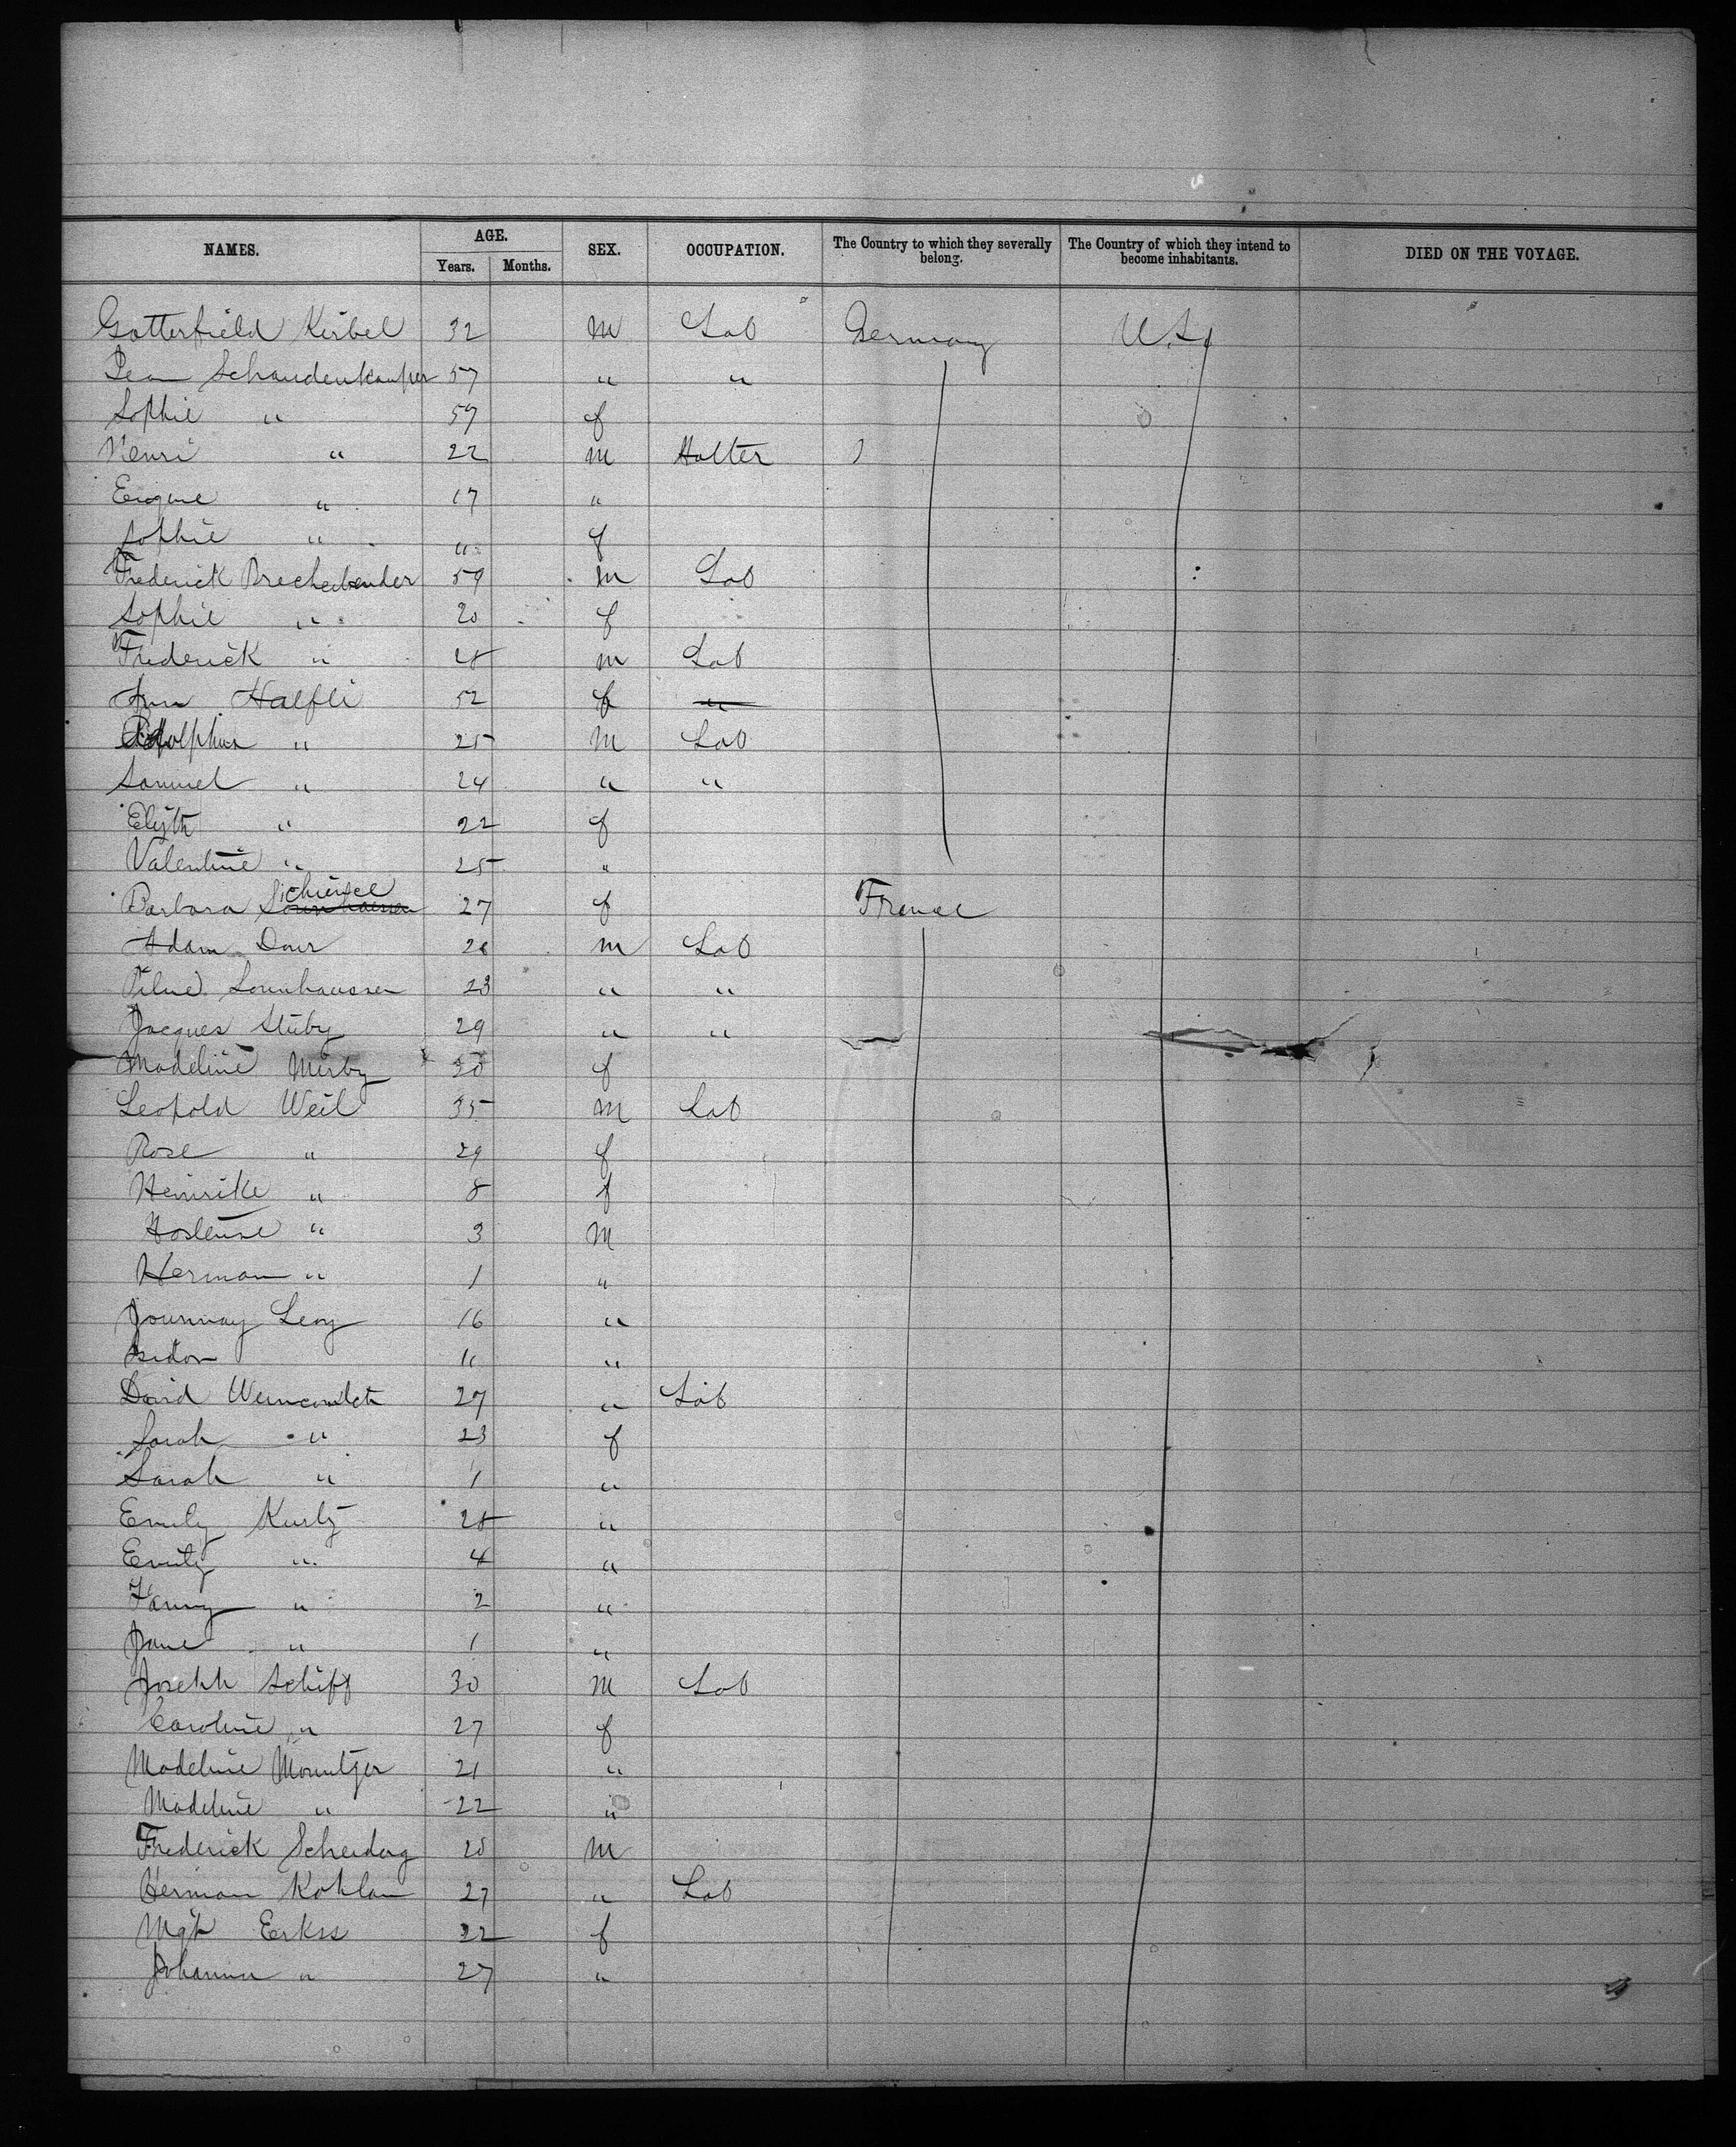 NAMES. AGE. SEX. OCCUPATION. The Country to which they severally belong. The Country of which they intend to become inhabitants. DIED ON THE VOYAGE.
Years. Months.
Gotterfield Kirbel 32 m Lab Germany U.S.
Schaudenkamper 57 " "
Sophie " 59 f
Henri " 22 m Hatter
Eugine " 17 "
Sophie " 11 f
Frederick 59 m Lab
Sophie " 20 f
Frederick " 18 m Lab
Ann Halfli 52 f "
Adolphus " 25 m Lab
Samuel " 24 " "
" 22 f
Valentine " 25 "
Barbara Schinsel 27 f France
Adam Dour 26 m Lab
Sonnhaussen 23 " "
Jacques Stuby 29 " "
Madeline Mirby 30 f
Leopold Weil 35 m Lab
Rose " 29 f
Heinrike " 8 f
Hostense " 3 m
Herman " 1 "
Levy 16 "
Isidor 11 "
David 27 " Lab
Sarah " 23 f
Sarah " 1 "
Emily Kurtz 28 "
Emily " 4 "
Fanny " 2 "
Jane " 1 "
Joseph Schiff 30 m Lab
Caroline " 27 f
Madeline Mountzer 21 "
Madeline " 22 "
Frederick 20 m
Herman Kohlan 27 " Lab
Mgt Erkss 22 f
Johanna " 27 "